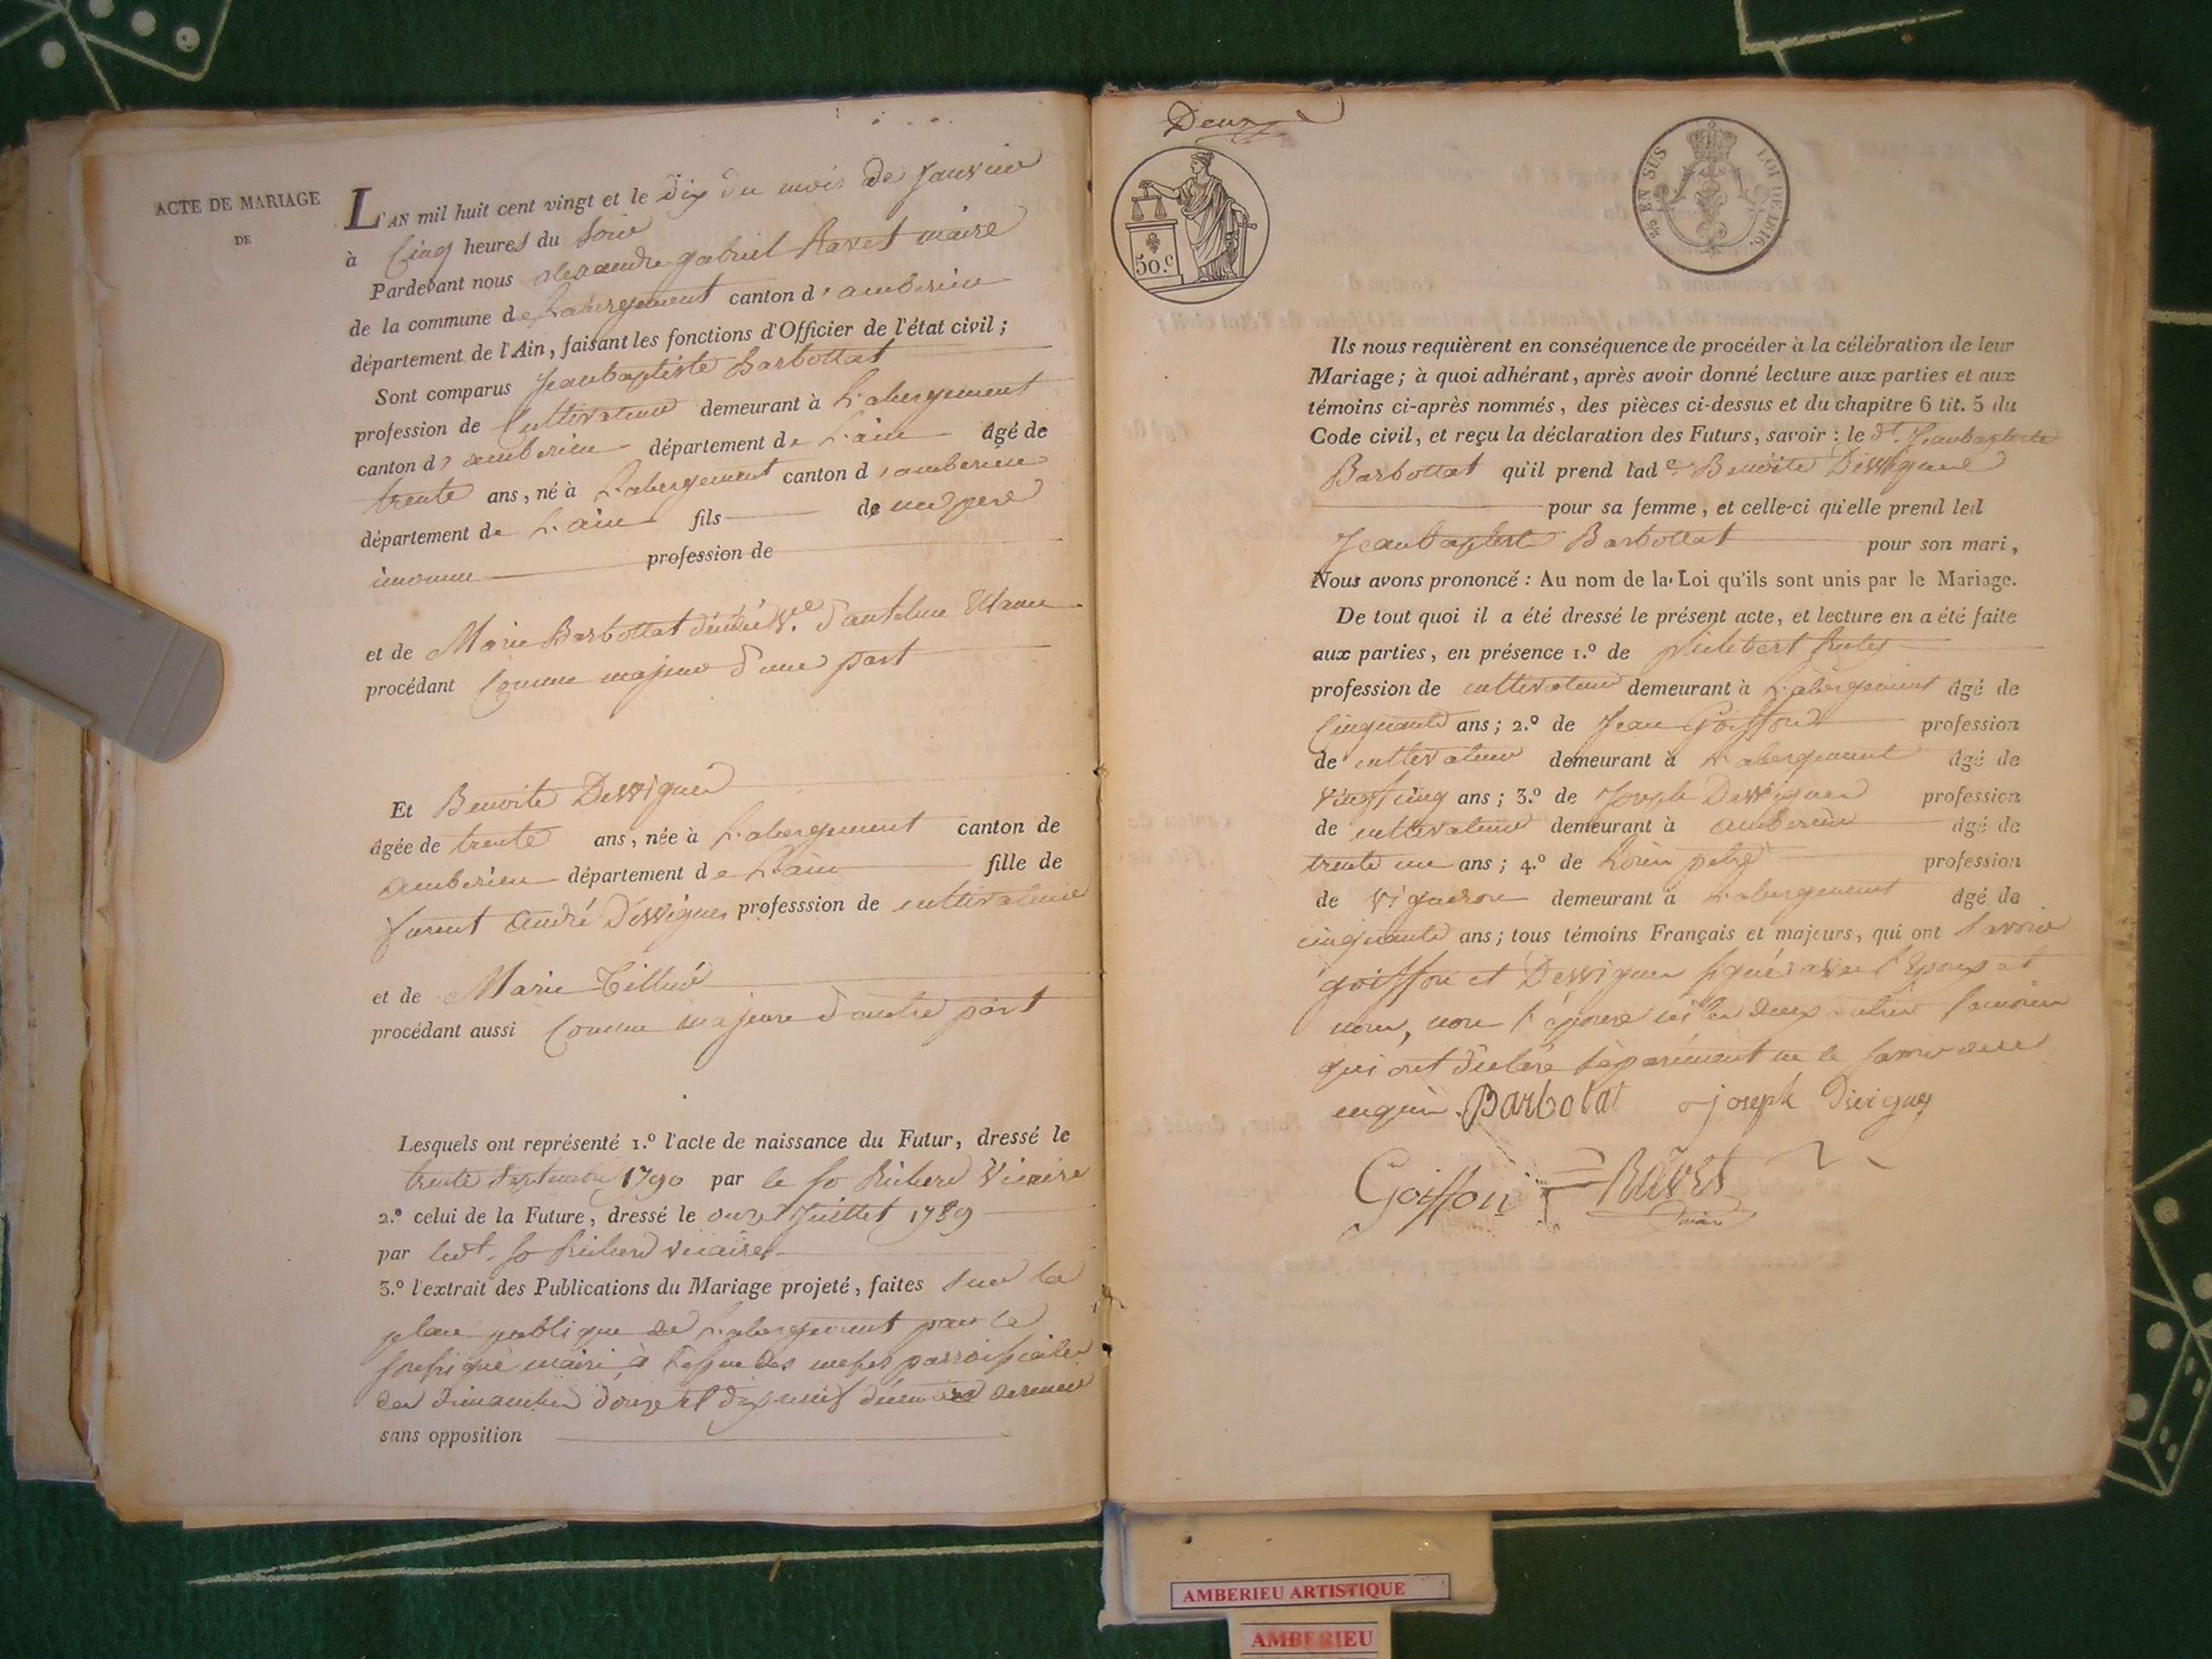 ACTE DE MARIAGE
DE
L'AN mil huit cent vingt et le dix du mois de Janvier
à Cinq heures du Soir
Pardevant nous alexandre gabriel Ravet maire
de la commune de L'abergement canton d'amberieu
département de l'Ain, faisant les fonctions d'Officier de l'état civil;
Sont comparus Jeanbaptiste Barbottat
profession de Cultivateur demeurant à L'abergement
canton d'amberieu département de L'ain âgé de
trente ans, né à L'abergement canton d'amberieu
département de L'ain fils de un pere
inconnu profession de
et de Marie Barbottat décédée Ve. d'antelme
procédant Comme majeur d'une part
Et Benoite Dessignes
âgée de trente ans, née à L'abergement canton de
amberieu département de L'ain fille de
furent andré Dessignes professsion de cultivateur
et de Marie
procédant aussi Comme majeure d'autre part
Lesquels ont représenté 1.º l'acte de naissance du Futur, dressé le
trente Septembre 1790 par le Sr Vicaire
2.º celui de la Future, dressé le onze Juillet 1789
par ledt. Sr vicaire
3.º l'extrait des Publications du Mariage projeté, faites Sur la
place publique de L'abergement par le
soussigné maire à l'issue des messes parroissiales
des dimanches douze et dix neuf décembre dernier
sans opposition
Deux
50.c
25c EN SUS LOI DE 1816.
Ils nous requièrent en conséquence de procéder à la célébration de leur
Mariage; à quoi adhérant, après avoir donné lecture aux parties et aux
témoins ci-après nommés, des pièces ci-dessus et du chapitre 6 tit. 5 du
Code civil, et reçu la déclaration des Futurs, savoir: le dt. Jeanbaptiste
Barbottat qu'il prend lade Benoite Dessignes
pour sa femme, et celle-ci qu'elle prend led
Jeanbaptiste Barbottat pour son mari,
Nous avons prononcé: Au nom de la Loi qu'ils sont unis par le Mariage.
De tout quoi il a été dressé le présent acte, et lecture en a été faite
aux parties, en présence 1.º de philibert
profession de cultivateur demeurant à L'abergement âgé de
Cinquante ans; 2.º de Jean Goiffon profession
de cultivateur demeurant à L'abergement âgé de
Vingt cinq ans; 3.º de Joseph Dessignes profession
de cultivateur demeurant à amberieu âgé de
trente un ans; 4.º de profession
de Vigneron demeurant à L'abergement âgé de
cinquante ans; tous témoins Français et majeurs, qui ont Savoir
goiffon et Dessignes signé avec l'Epoux et
nous, non l'épouse ni les deux autres temoins
qui ont déclaré séparément ne le savoir de ce
enquis. Barbotat joseph
Goiffon Ravet
maire
AMBERIEU ARTISTIQUE
AMBERIEU